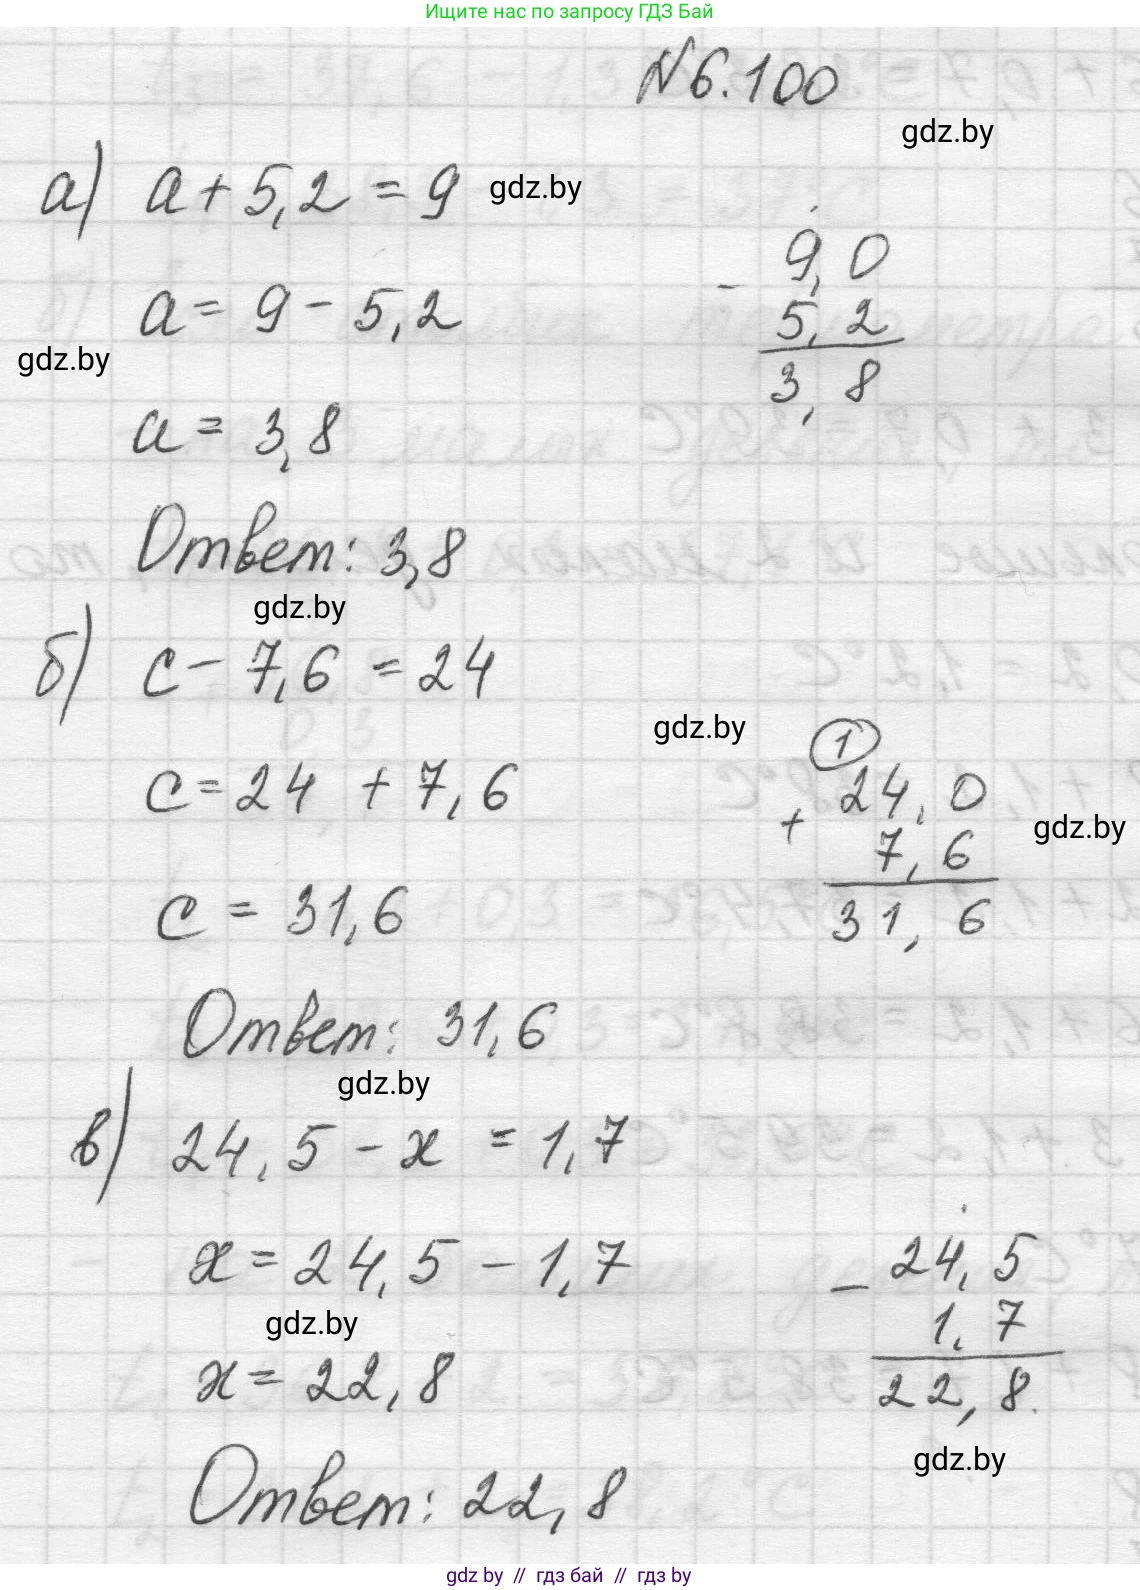 Ищите нас по запросу ГДЗ Бай
№6.100
gdz.by
а) a + 5,2 = 9
gdz.by
a = 9 - 5,2
gdz.by
a = 3,8
- 9,0
5,2
3,8
Ответ: 3,8
gdz.by
б) c - 7,6 = 24
gdz.by
c = 24 + 7,6
c = 31,6
1
24,0
+ 7,6
31,6
gdz.by
Ответ: 31,6
gdz.by
в) 24,5 - x = 1,7
x = 24,5 - 1,7
gdz.by
x = 22,8
- 24,5
1,7
22,8.
gdz.by
Ответ: 22,8
gdz.by // гдз бай // гдз by